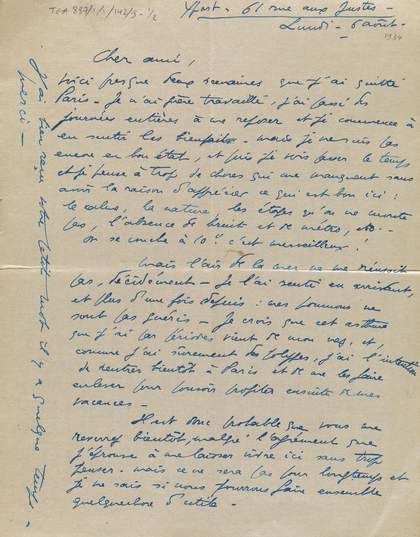 TGA 897/1/1/142/5-1/2
Yport - 61 rue aux Justes -
Lundi - 6 août -
1934
Cher ami,
voici presque deux semaines que j'ai quitté
Paris - Je n'ai guère travaillé, j'ai passé des
journées entières à me reposer et je commence à
en sentir les bienfaits - mais je ne suis pas
encore en bon état, et puis je vois passer le temps
et je pense à trop de choses qui me manquent sans
avoir la raison d'apprécier ce qui est bon ici :
le calme, la nature les étoiles qu'on ne
pas, l'absence de bruit et de métro, etc..
On se couche à 10h c'est merveilleux !
mais l'air de la mer ne me réussit
pas, décidément - Je l'ai senti en arrivant
et plus d'une fois depuis : mes poumons ne
sont pas guéris - Je crois que cet asthme
que j'ai par périodes vient de mon nez, et,
comme j'ai sûrement des polypes, j'ai l'intention
de rentrer bientôt à Paris et de me les faire
enlever pour pouvoir profiter ensuite de mes
vacances -
Il est donc probable que vous me
reverrez bientôt, malgré l'agrément que
j'éprouve à me laisser vivre ici sans trop
penser. mais ce ne sera pas pour longtemps et
je ne sais si nous pourrons faire ensemble
quelquechose d'utile -
J'ai bien reçu votre petit mot il y a quelque temps,
merci -